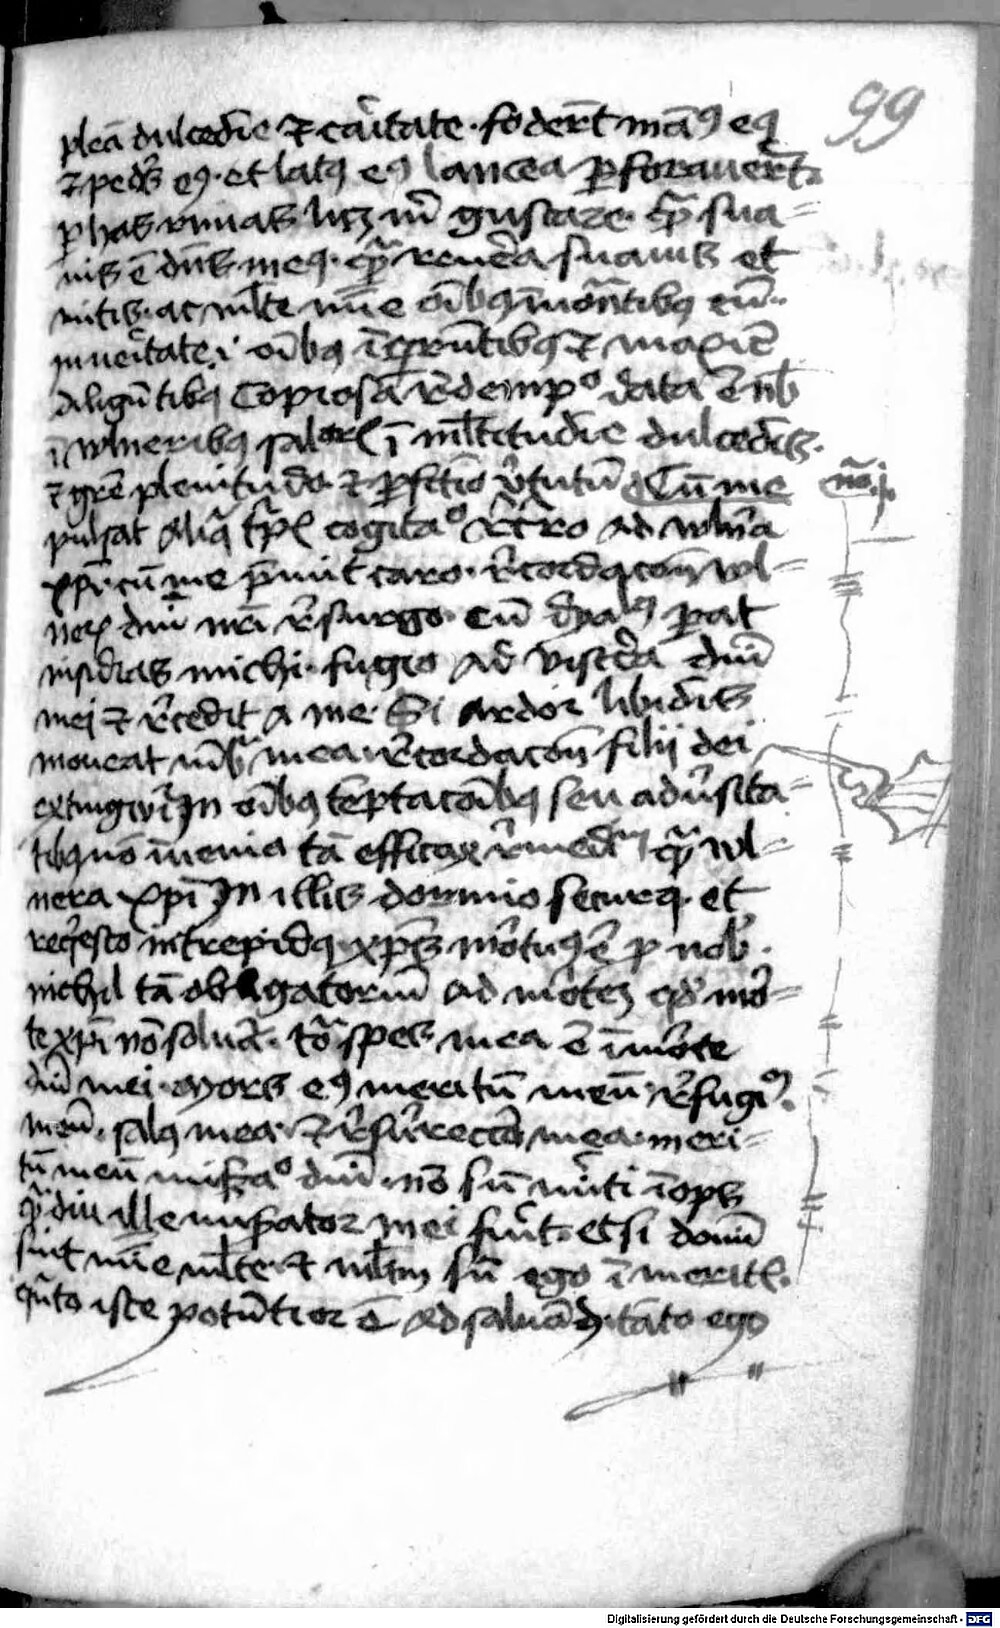 99
plea dulcedie et caritate. foderut manus eius
et pedes eius. et latus eius lancea perforaverut.
per has rimas licet michi gustare. quam sua=
vis e dns meus. quia revera suavis et
mitis. ac multe mie oibus invocantibus eum.
in veritate. oibus inquirentibus et maxime
diligentibus Copiosa redempcio data e nobis
in vulneribus salvatoris multitudie dulcedinis.
et gre plenitudo. et perfectio virtutum Cum me
no.
pulsat aliqua turpis cogitacio recurro ad vulnera
xpi. cum me premit caro. recordacione vul=
nerum dni mei resurgo. cum dyabolus parat
insidias michi. fugio ad viscera dni
mei et recedit a me. Si ardor libidinis
moveat membra mea recordacione filii dei
extinguitur In oibus temptacoibus seu adversita=
tibus non invenio tam efficax remedium quam vul=
nera xpi In illis dormio securus. et
requiesco intrepidus xps mortuus e pro nobis.
nichil tam ad mortem quod mor=
te xpi non salvetur. tota spes mea e in morte
dni mei. Mors eius meritum meum. refugium
meum. salus mea. et resurreccio mea. meri=
tum meum miseracio dni. non sum meriti inops
quam diu ille miserator mei fuerit. Et si domini
sint mie multe. et multum sum ego in meritis.
quanto iste potentior e ad salvandum. tanto ego
Digitalisierung gefördert durch die Deutsche Forschungsgemeinschaft - DFG